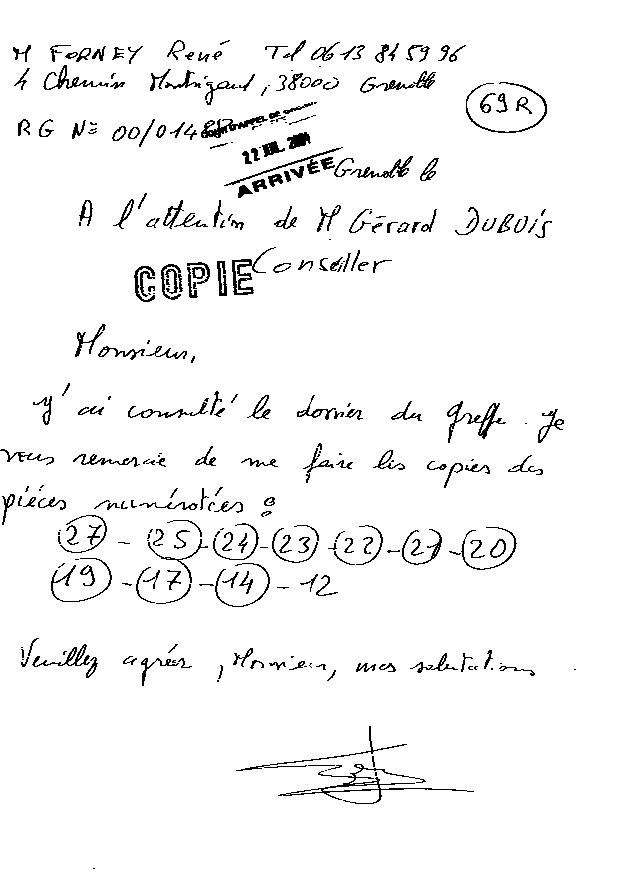 M FORNEY René Tel 06 13 84 59 96
4 Chemin Montrigaud, 38000 Grenoble
69 R
RG N= 00/014
COUR D'APPEL DE
22 JUL. 2001
ARRIVÉE
Grenoble le
A l'attention de M Gérard DUBOIS
COPIE Conseiller
Monsieur,
J'ai consulté le dossier du greffe. Je
vous remercie de me faire les copies des
pièces numérotées :
27 - 25 - 24 - 23 - 22 - 21 - 20
19 - 17 - 14 - 12
Veuillez agréer, Monsieur, mes salutations